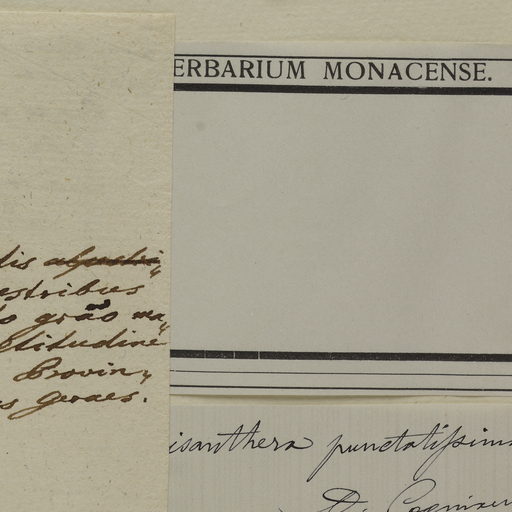 ERBARIUM MONACENSE.
lis
estribus
do grão ma„
ltitudine
Provin„
as geraes.
isanthera punctatissima